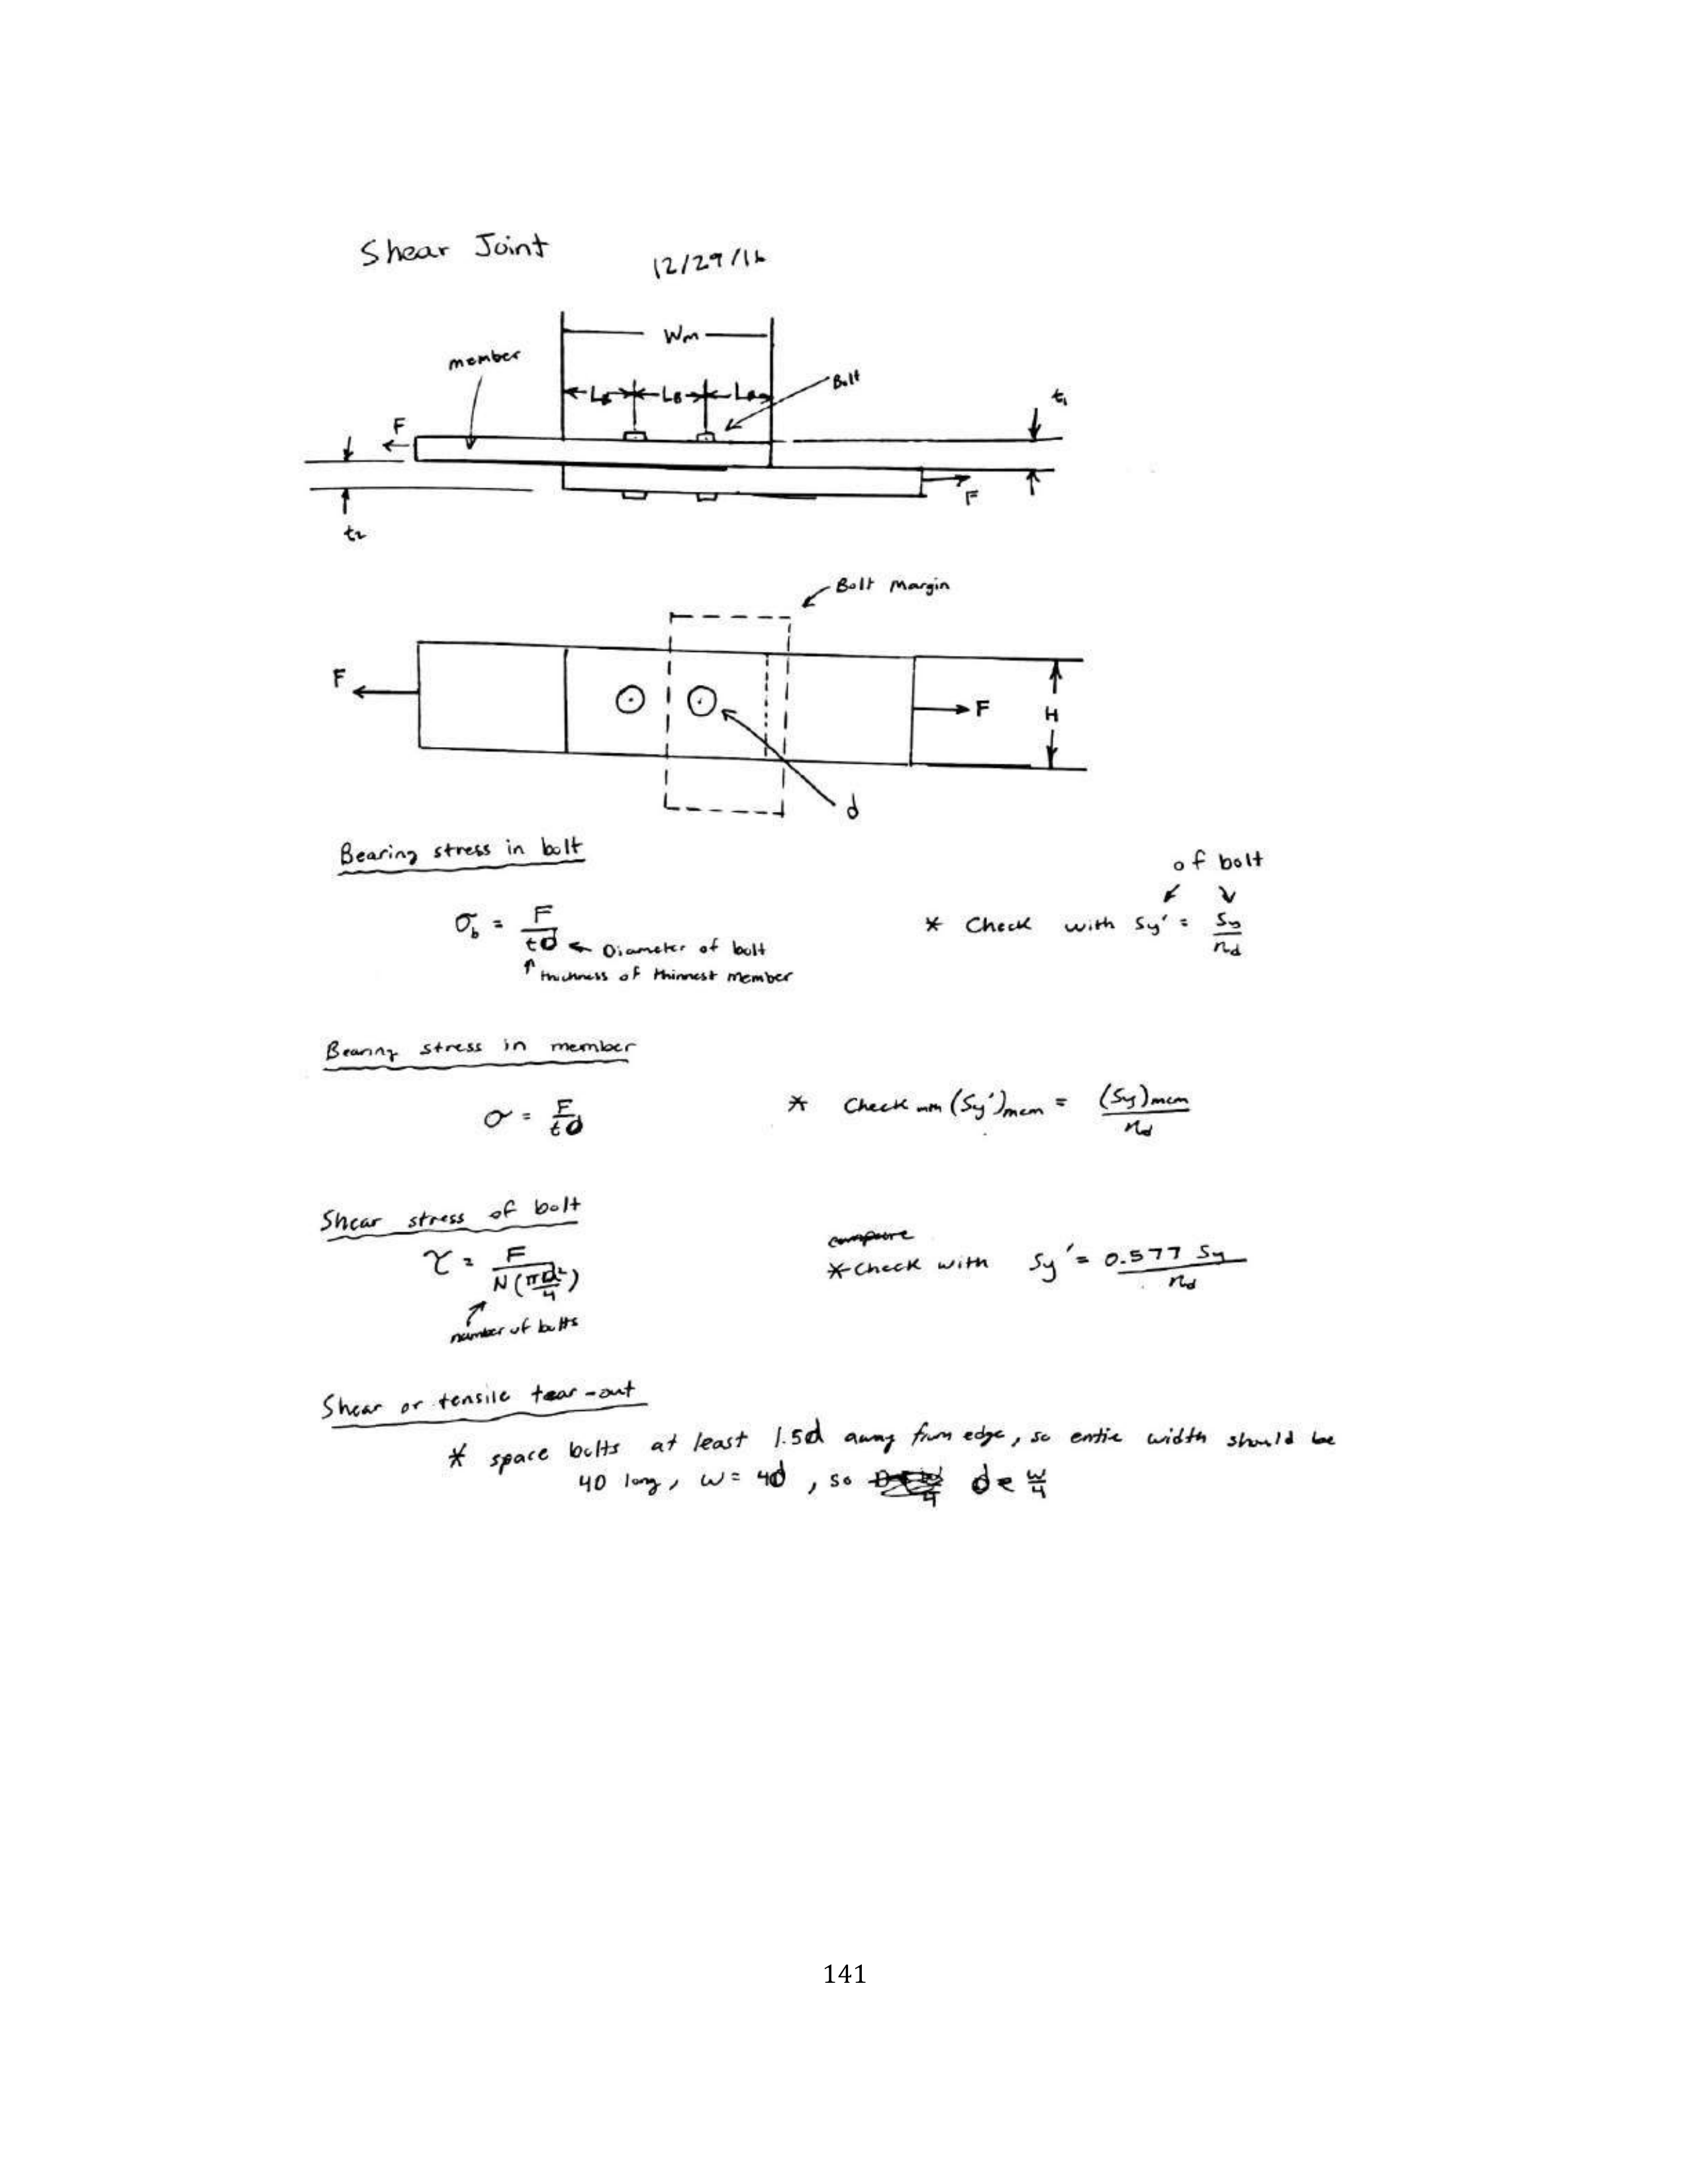 Shear Joint
12/29/16
Wm
member
LB
Bolt
t₁
F
F
t₂
Bolt Margin
F
F
H
d
Bearing stress in bolt
of bolt
σb = F/td ← Diameter of bolt
↑ thickness of thinnest member
* Check with Sy' = Sy/nd
Bearing stress in member
σ = F/td
* Check (Sy')mem = (Sy)mem/nd
Shear stress of bolt
τ = F/N(πd²/4)
number of bolts
compare
* Check with Sy' = 0.577 Sy/nd
Shear or tensile tear-out
* space bolts at least 1.5d away from edge, so entire width should be
4D long, w = 4d, so d = w/4
141